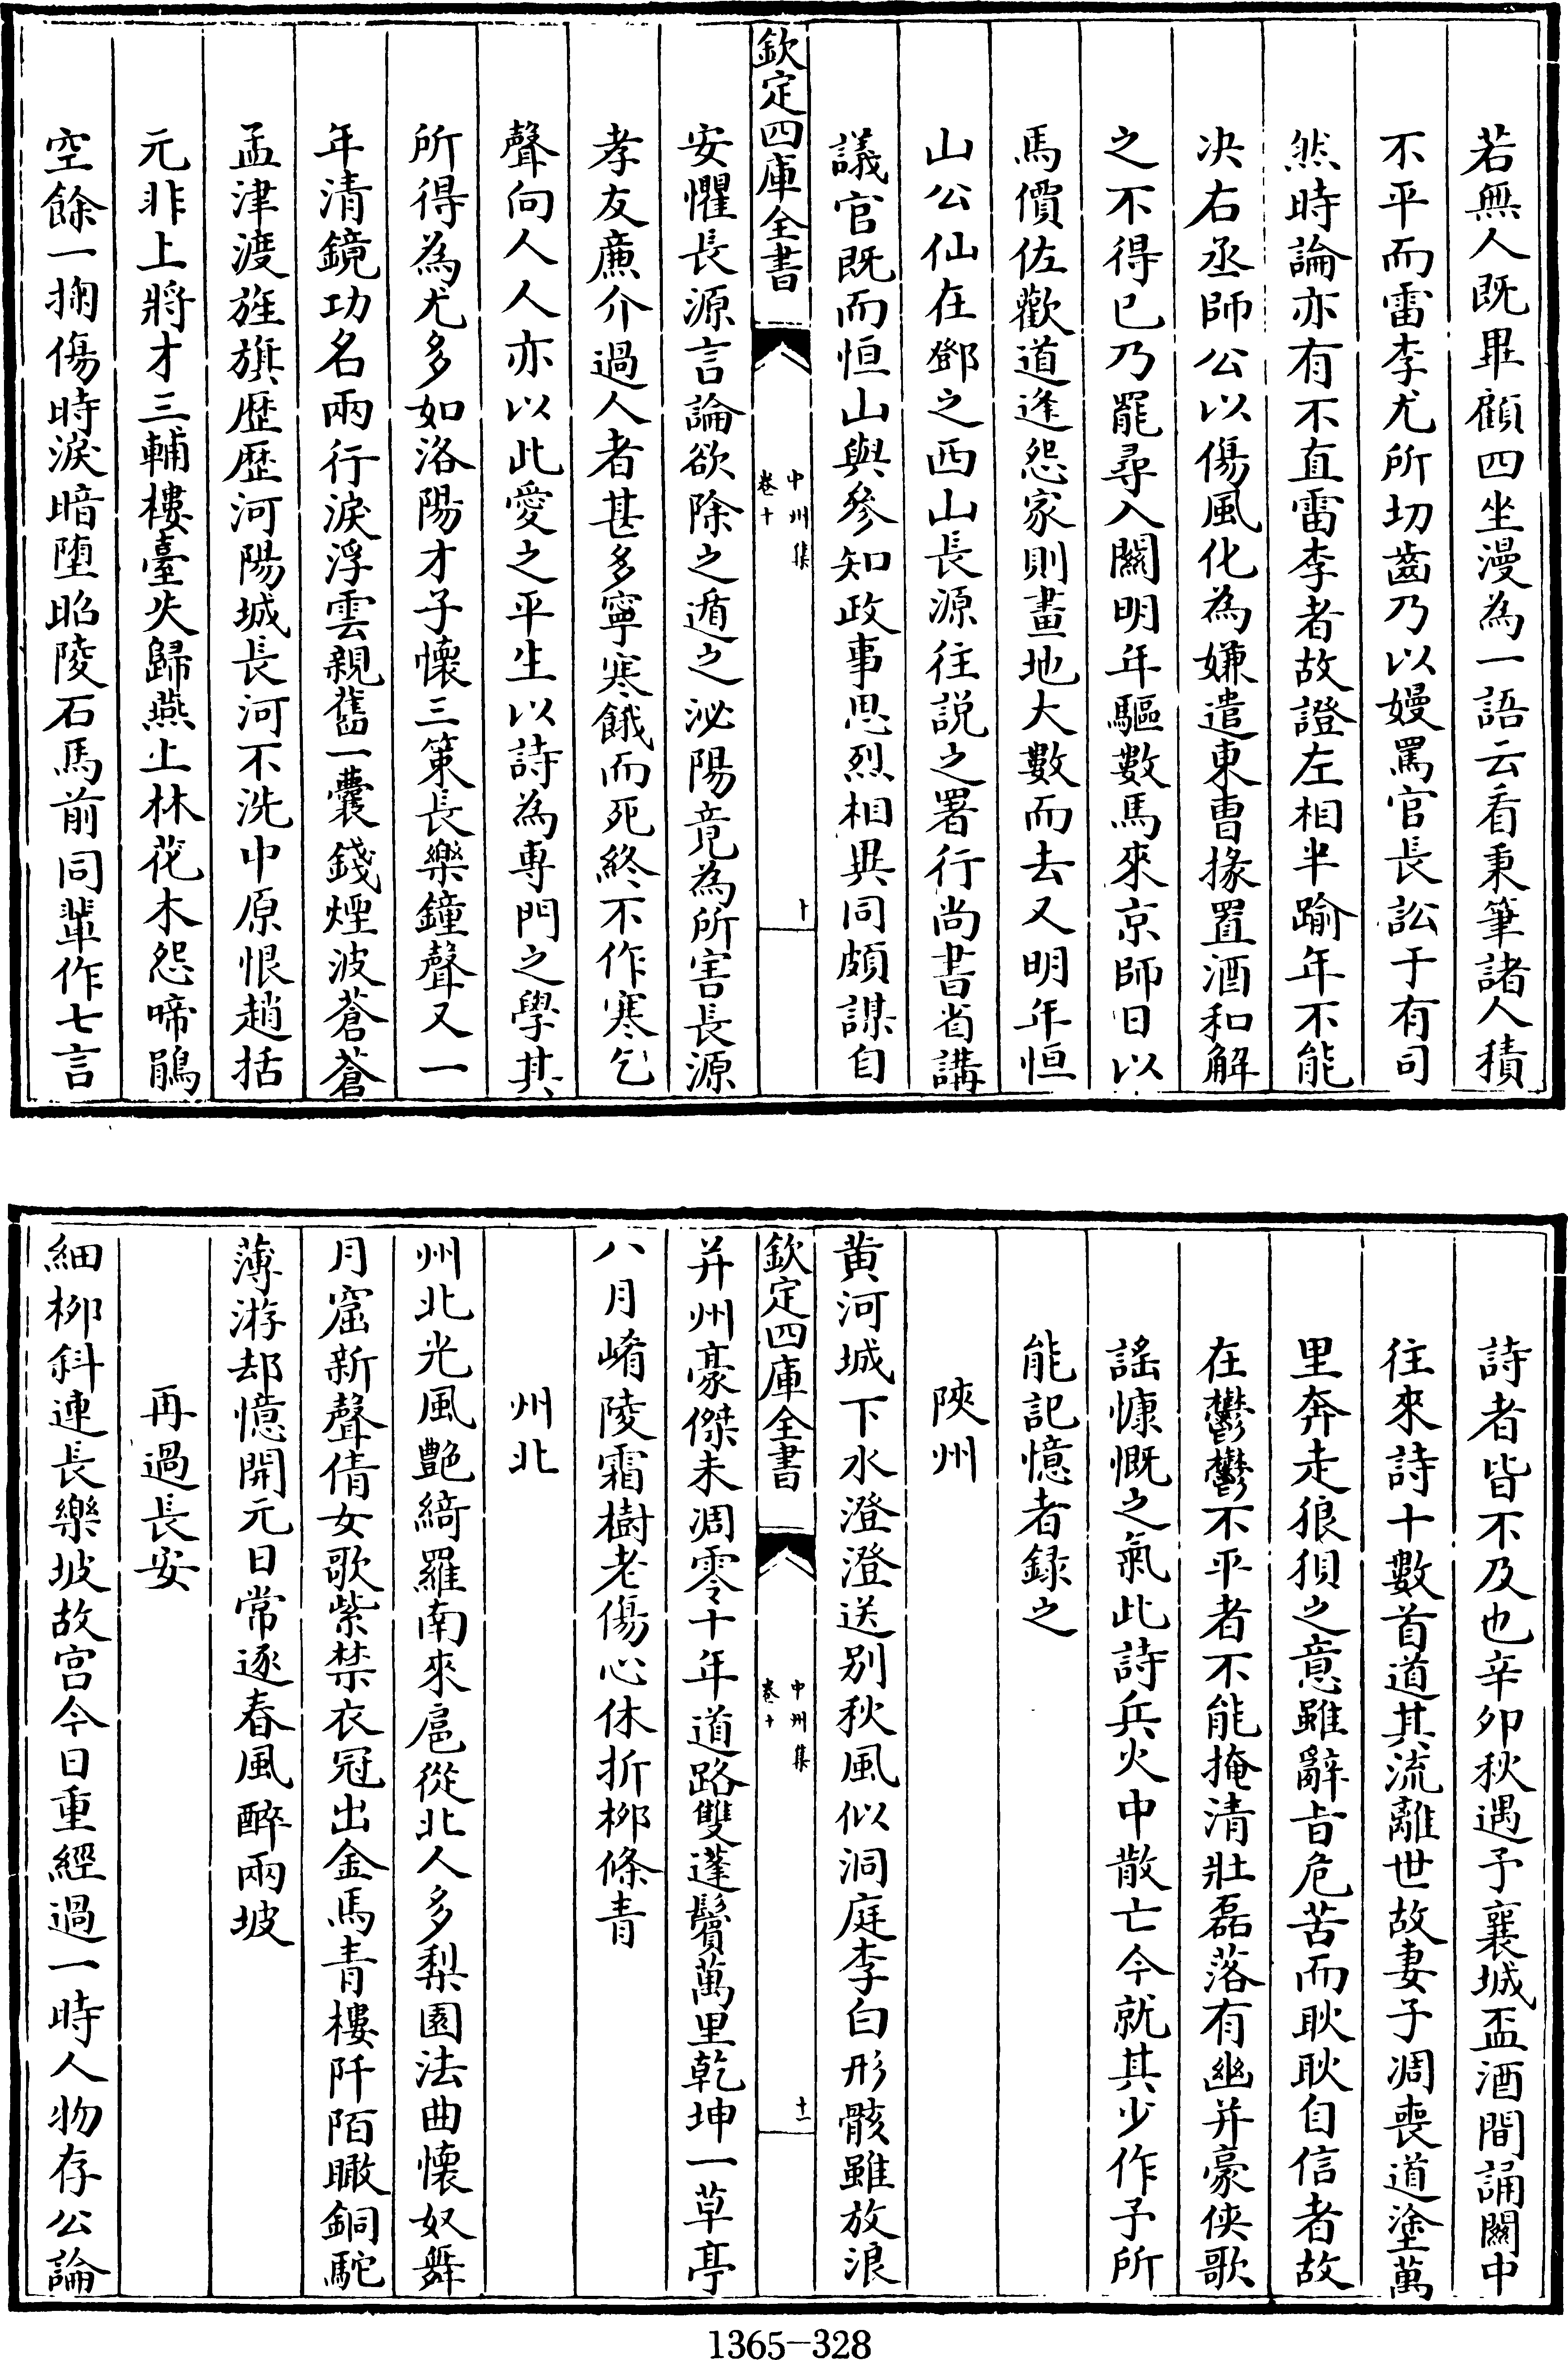 若無人既畢顧四坐漫為一語云看秉筆諸人積
不平而雷李尤所切齒乃以嫚罵官長訟于有司
然時論亦有不直雷李者故證左相半踰年不能
决右丞師公以傷風化為嫌遣東曹掾置酒和解
之不得已乃罷尋入關明年驅數馬來京師日以
馬價佐歡道逢怨家則畫地大數而去又明年恒
山公仙在鄧之西山長源往説之署行尚書省講
議官既而恒山與參知政事思烈相異同頗謀自
欽定四庫全書
中州集
卷十
十
安懼長源言論欲除之遁之泌陽竟為所害長源
孝友廉介過人者甚多寧寒餓而死終不作寒乞
聲向人人亦以此愛之平生以詩為專門之學其
所得為尤多如洛陽才子懷三策長樂鐘聲又一
年清鏡功名兩行淚浮雲親舊一囊錢煙波蒼蒼
孟津渡旌旗歴歴河陽城長河不洗中原恨趙括
元非上將才三輔樓臺失歸燕上林花木怨啼鵑
空餘一掬傷時淚暗墮昭陵石馬前同輩作七言
詩者皆不及也辛卯秋遇予襄城盃酒間誦關中
往來詩十數首道其流離世故妻子凋喪道塗萬
里奔走狼狽之意雖辭旨危苦而耿耿自信者故
在鬱鬱不平者不能掩清壯磊落有幽并豪俠歌
謠慷慨之氣此詩兵火中散亡今就其少作予所
能記憶者録之
陜州
黄河城下水澄澄送别秋風似洞庭李白形骸雖放浪
欽定四庫全書
中州集
卷十
十一
并州豪傑未凋零十年道路雙蓬鬢萬里乾坤一草亭
八月崤陵霜樹老傷心休折栁條青
州北
州北光風艷綺羅南來扈從北人多梨園法曲懷奴舞
月窟新聲倩女歌紫禁衣冠出金馬青樓阡陌瞰銅駝
薄游却憶開元日常逐春風醉兩坡
再過長安
細栁斜連長樂坡故宫今日重經過一時人物存公論
1365-328